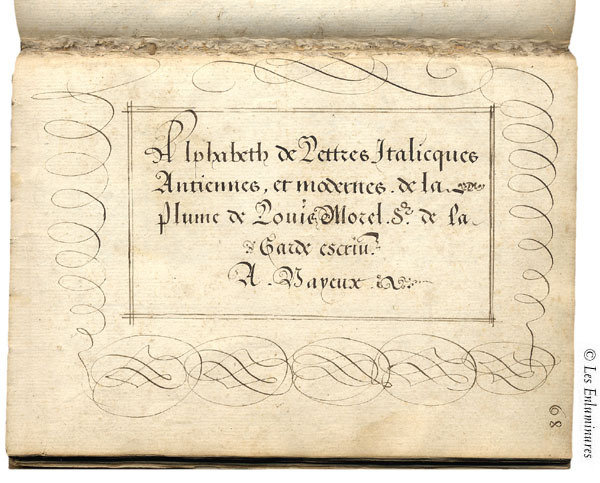 Alphabeth de Lettres Italicques
Antiennes, et modernes. de la
plume de Louis Morel. Sr. de la
Garde escriu.
A. Bayeux.
© Les Enluminures